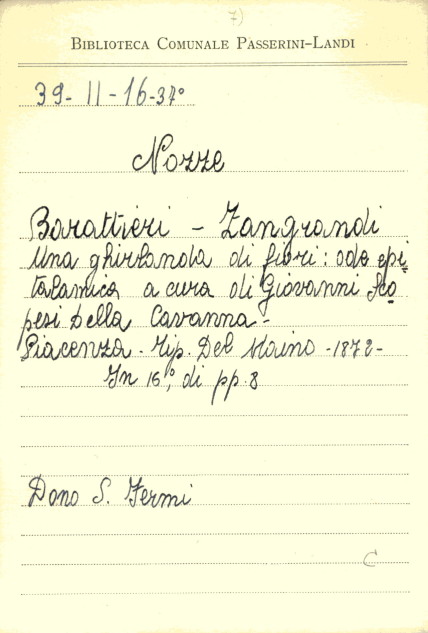 7)
BIBLIOTECA COMUNALE PASSERINI-LANDI
39- II - 16-37°
Nozze
Barattieri - Zangrandi
Una ghirlanda di fiori: ode epi-
talamica a cura di Giovanni Sco-
pesi della Cavanna-
Piacenza. Tip. Del Maino -1872-
In 16°, di pp. 8
Dono S. Fermi
C